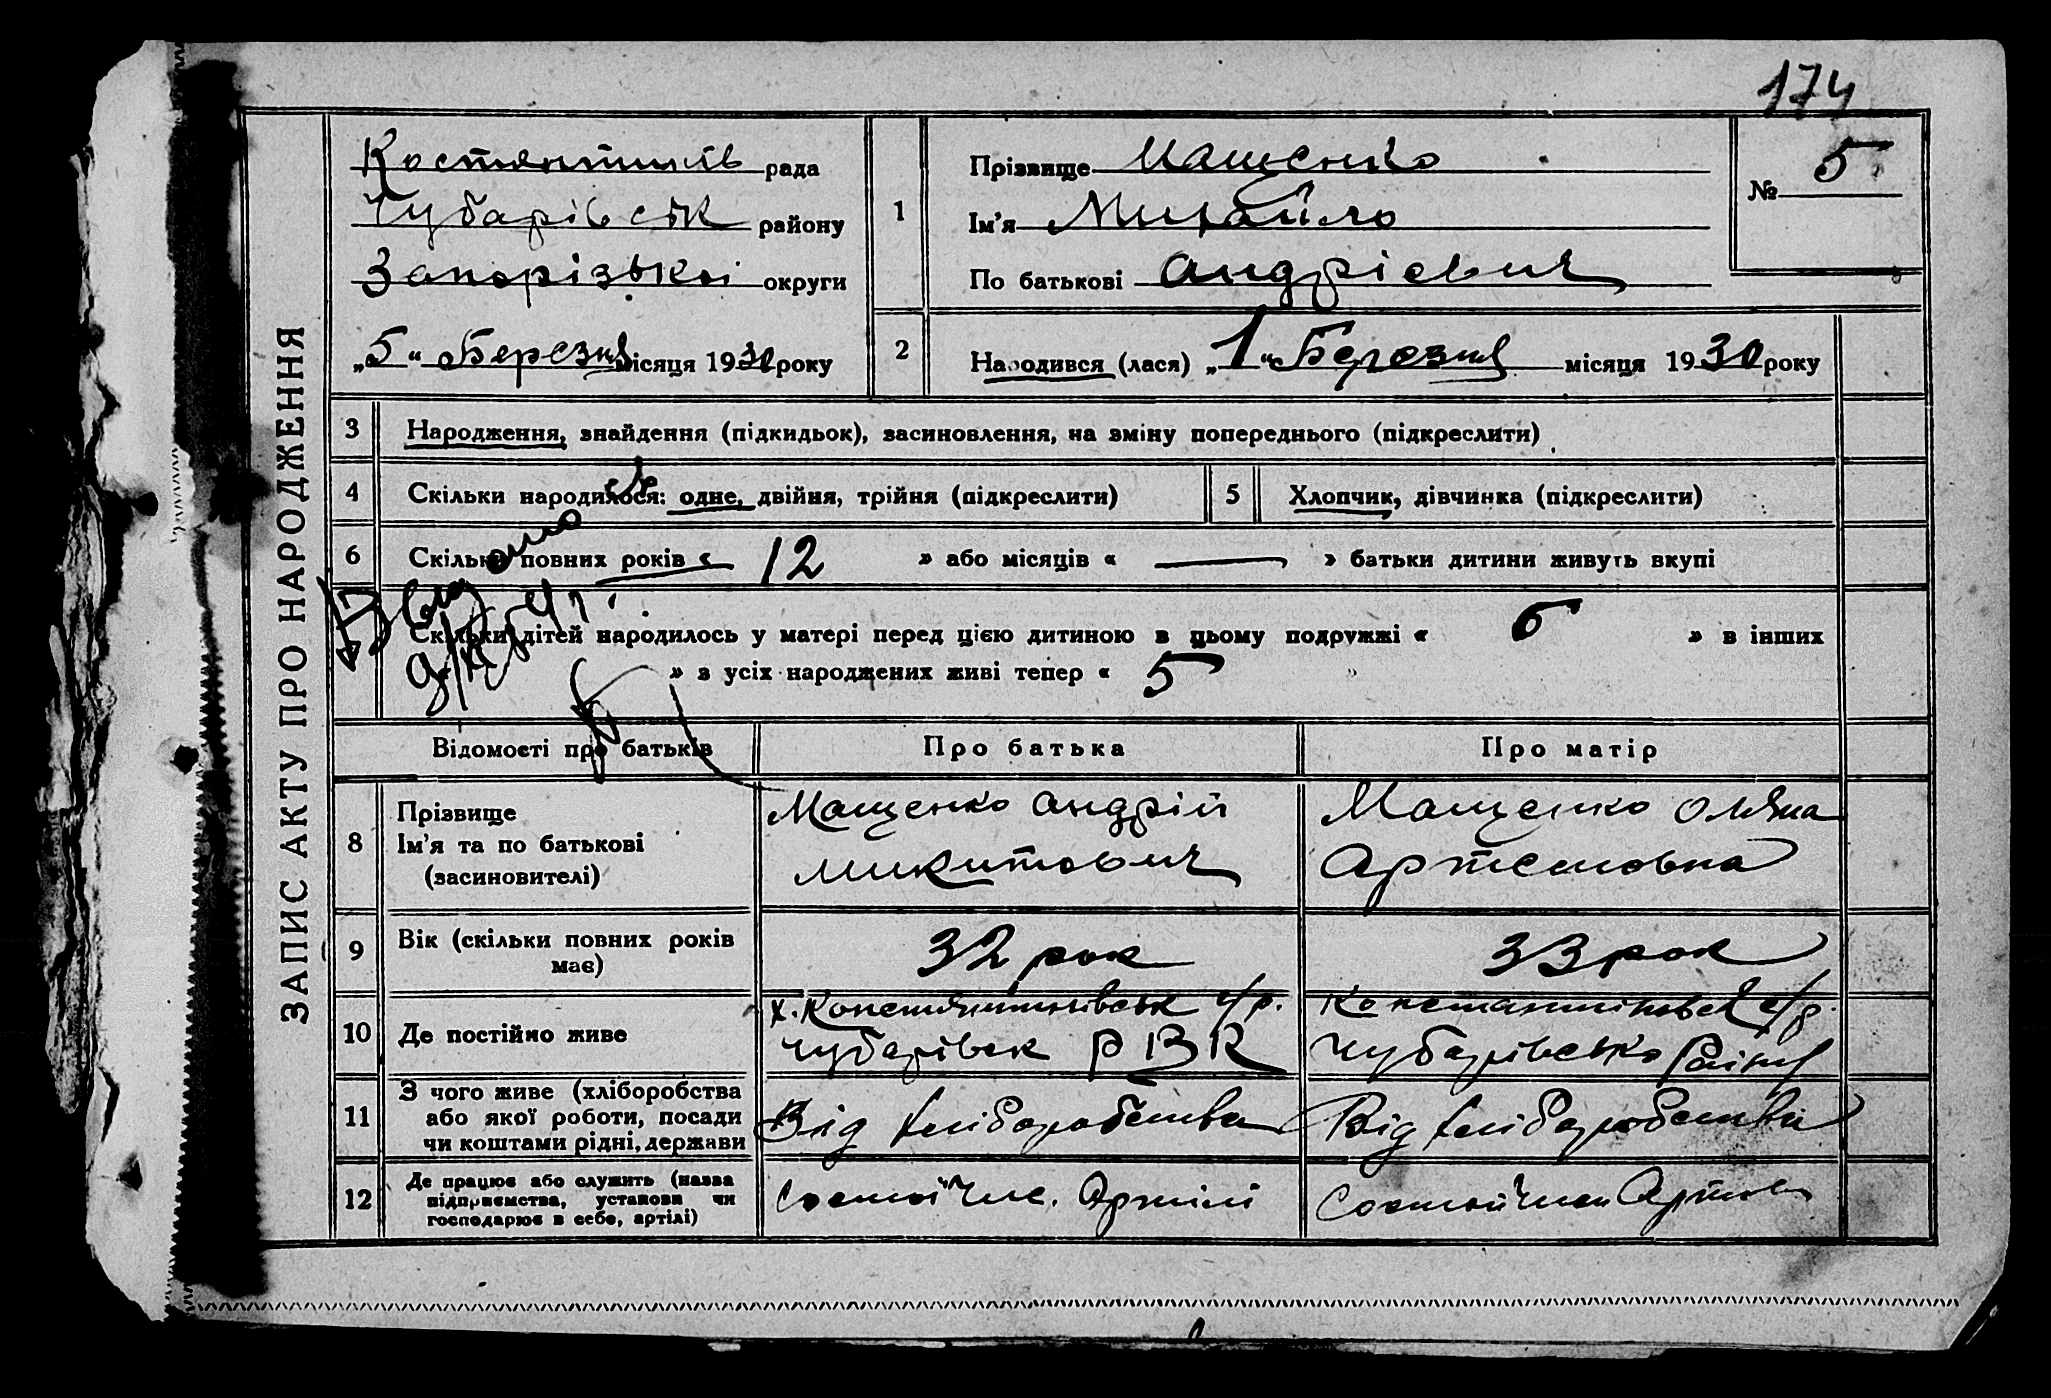 174
ЗАПИС АКТУ ПРО НАРОДЖЕННЯ
Костянтинів рада
Чубарівськ району
Запорізької округи
„5“ Березня місяця 1930 року
1
Прізвище Мащенко
Ім'я Михайло
По батькові Андрієвич
№ 5
2
Народився (лася) „1“ Березня місяця 1930 року
3 Народження, знайдення (підкидьок), засиновлення, на зміну попереднього (підкреслити)
4 Скільки народилося: одне, двійня, трійня (підкреслити)
5 Хлопчик, дівчинка (підкреслити)
6 Скільки повних років « 12 » або місяців « — » батьки дитини живуть вкупі
Скільки дітей народилось у матері перед цією дитиною в цьому подружжі « 6 » в інших
» з усіх народжених живі тепер « 5 »
Відомості про батьків Про батька Про матір
8 Прізвище
Ім'я та по батькові
(засиновителі)
Мащенко Андрій
Микитович
Мащенко Оляна
Артемовна
9 Вік (скільки повних років
має)
32 рок
33 рок
10 Де постійно живе
х. Констянтинівськ с/р.
Чубарівск РВК
Константиновск с/р.
Чубарівсько Району
11 З чого живе (хліборобства
або якої роботи, посади
чи коштами рідні, держави
Від хліборобства
Від хліборобства
12 Де працює або служить (назва
підприємства, установи чи
господарює в себе, артілі)
Состой Член. Артілі
Состой Член Артілі